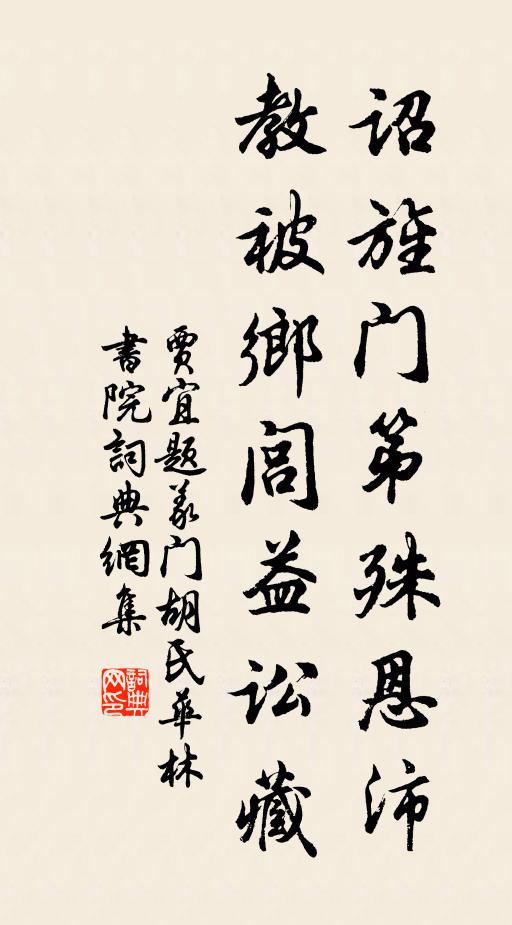 诏旌门第殊恩沛
教被鄉闾益讼藏
贾宜题义门胡氏华林
書院詞典網集
詞典网